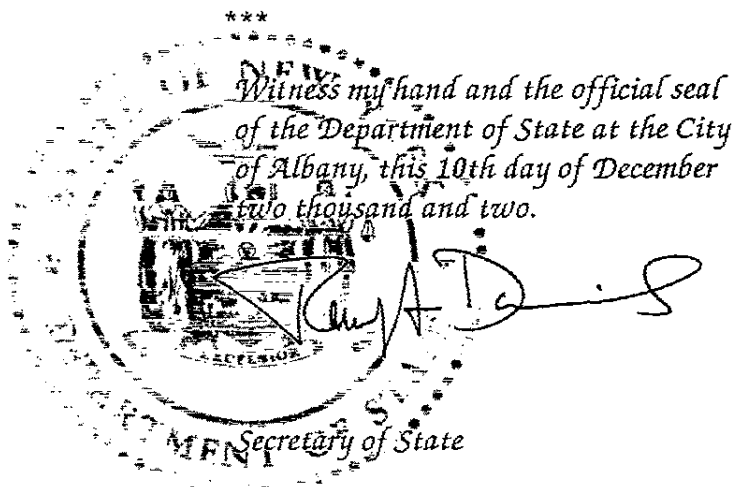 ***
OF NEW
Witness my hand and the official seal
of the Department of State at the City
of Albany, this 10th day of December
two thousand and two.
EXCELSIOR
Secretary of State